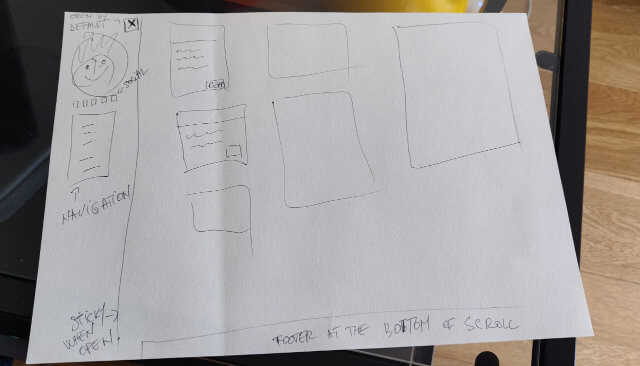 OPEN BY
DEFAULT →
X
SOCIAL
NAVIGATION
STICKY →
WHEN
OPEN!
FOOTER AT THE BOTTOM OF SCROLL